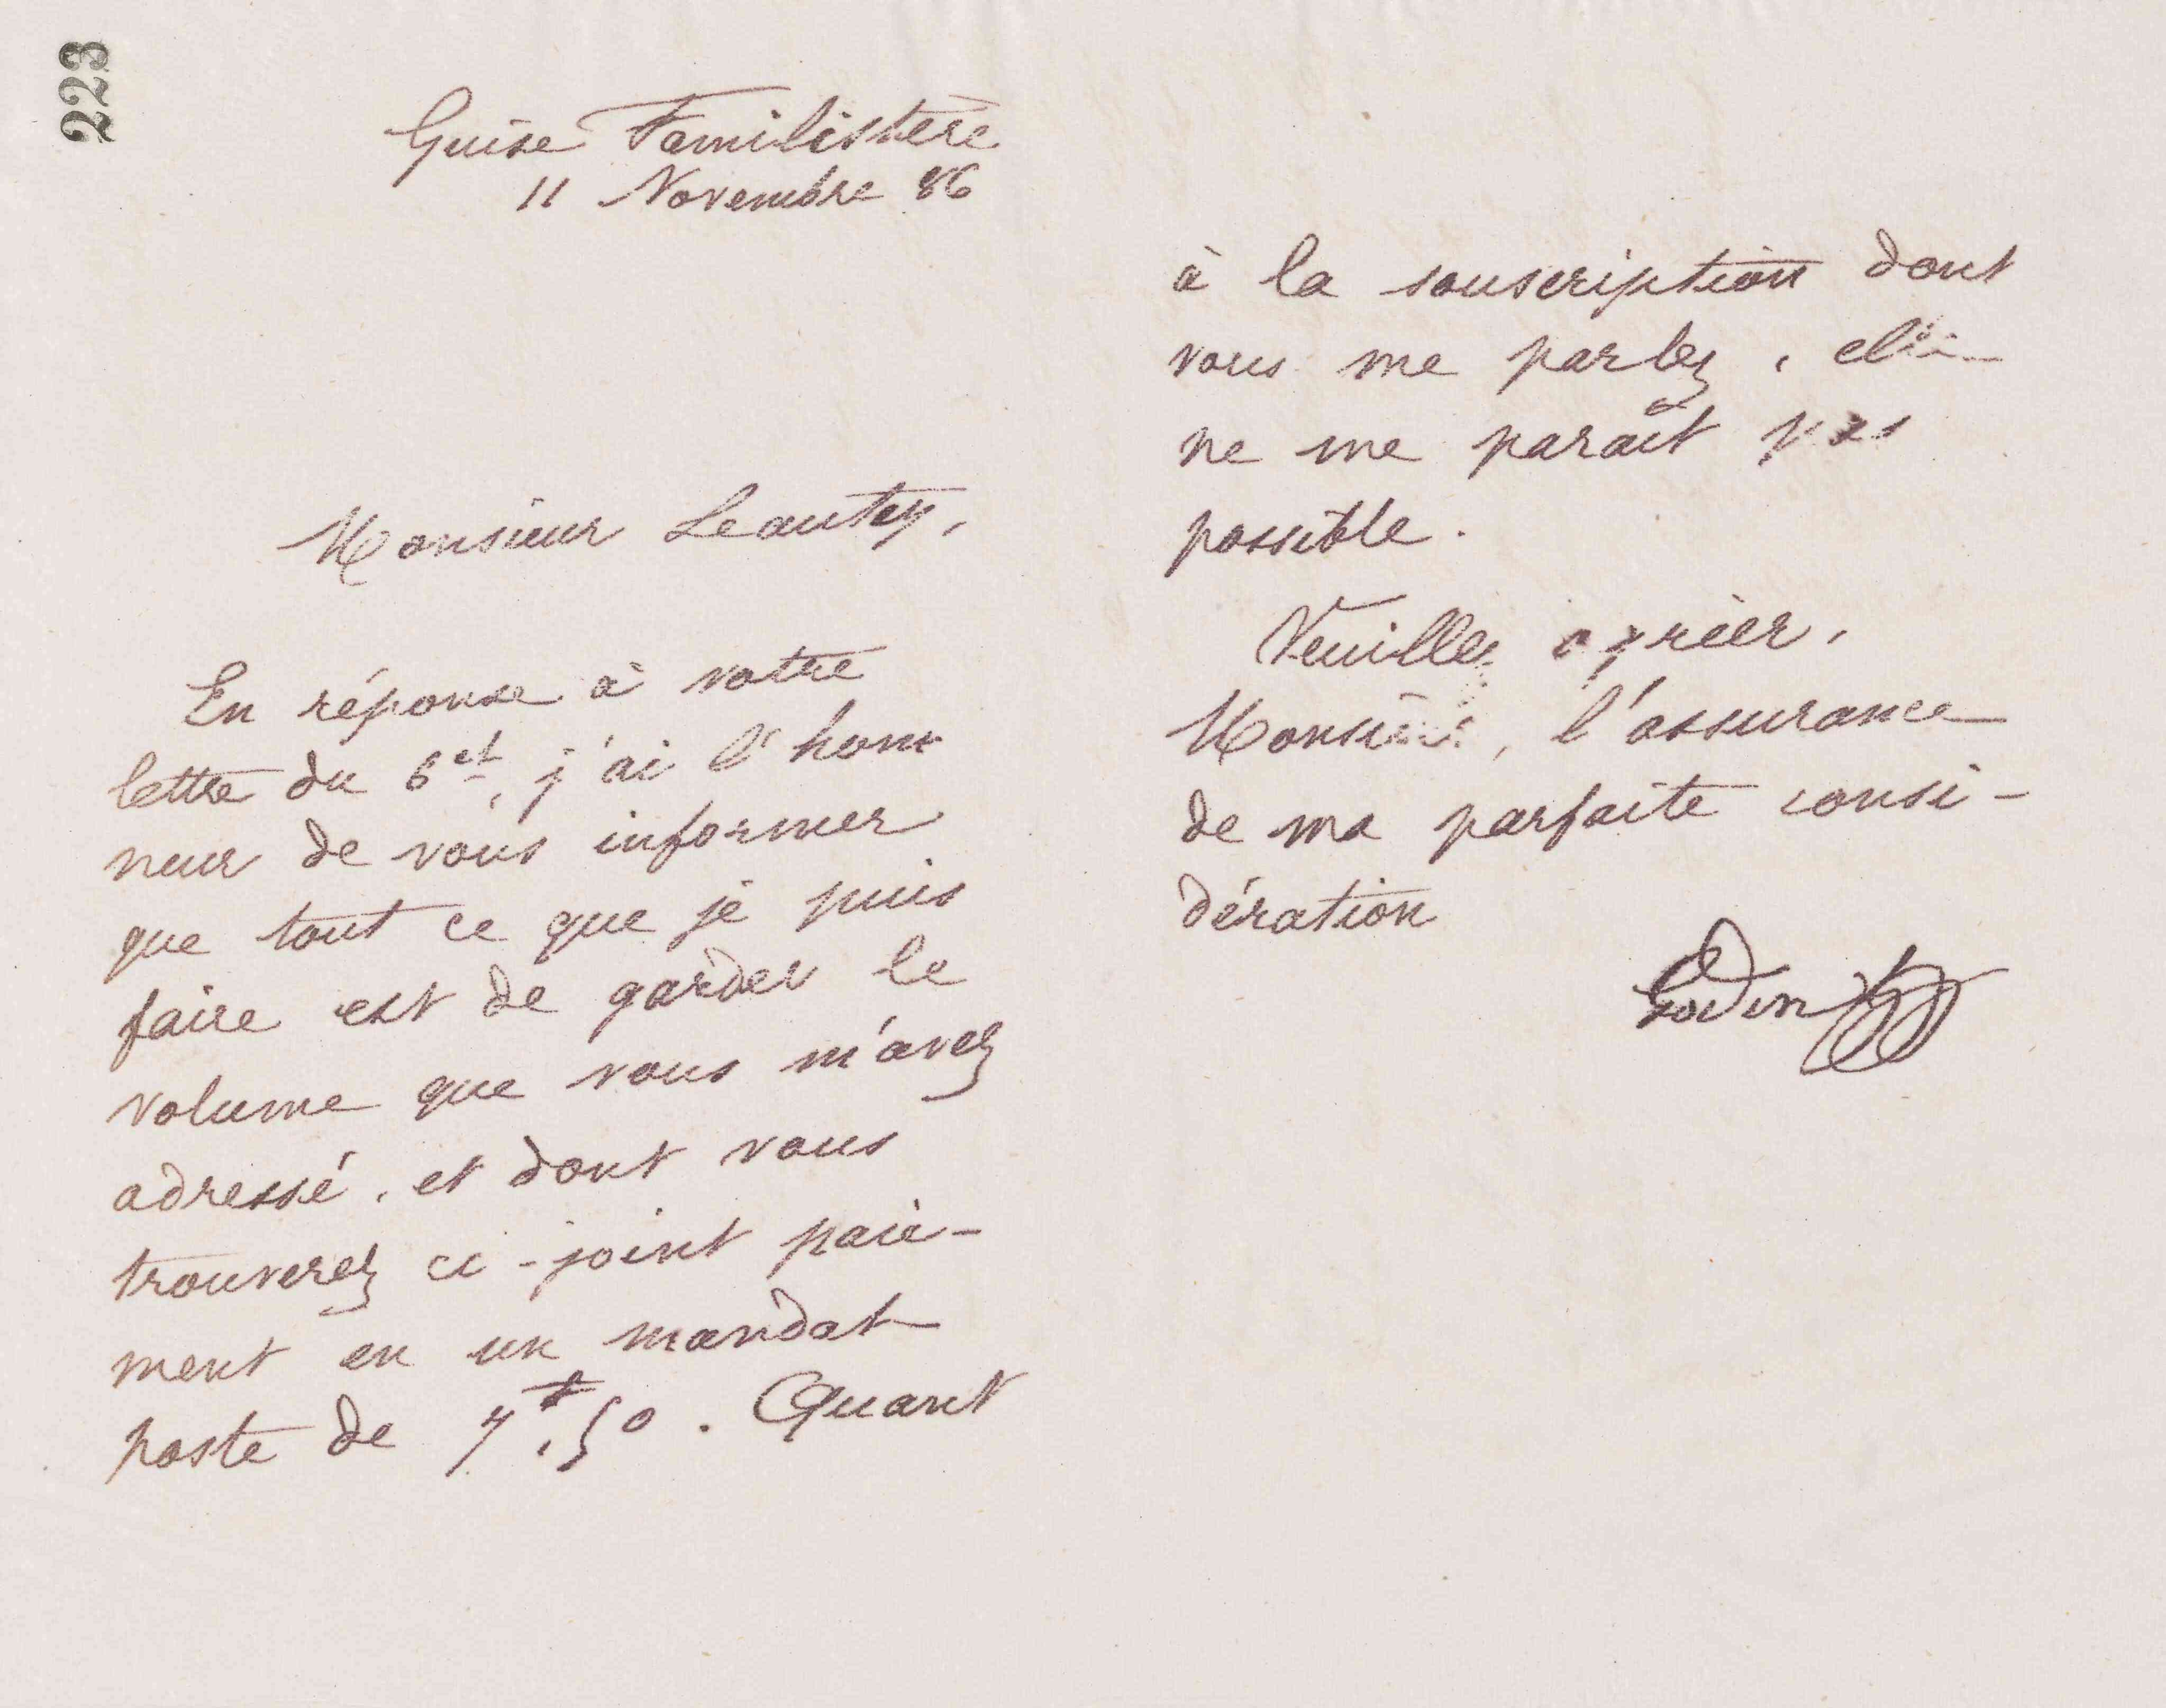 223
Guise Familistère
11 Novembre 86
Monsieur Leautey,
En réponse à votre
lettre du 6 ct, j'ai l'hon
neur de vous informer
que tout ce que je puis
faire est de garder le
volume que vous m'avez
adressé, et dont vous
trouverez ci-joint paie-
ment en un mandat
poste de 7f,50. Quant
à la souscription dont
vous me parlez, elle
ne me paraît pas
possible.
Veuillez agréer,
Monsieur, l'assurance
de ma parfaite consi-
dération
Godin